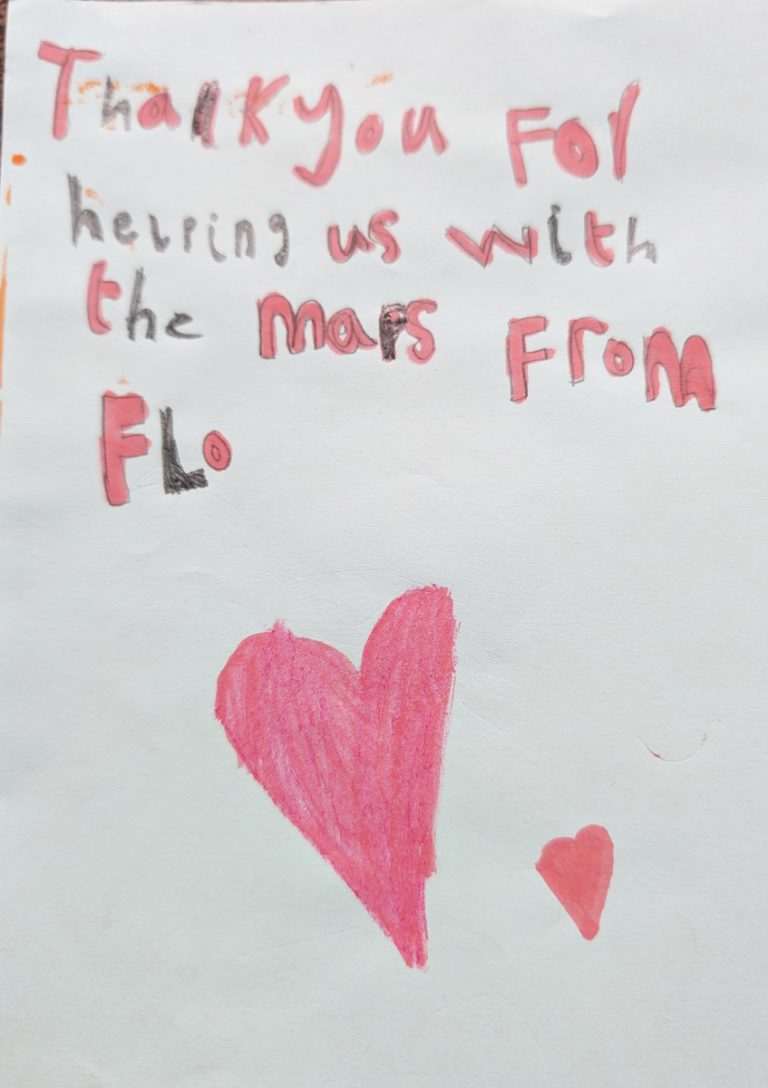 Thank you For
heLping us with
the maps From
FLo